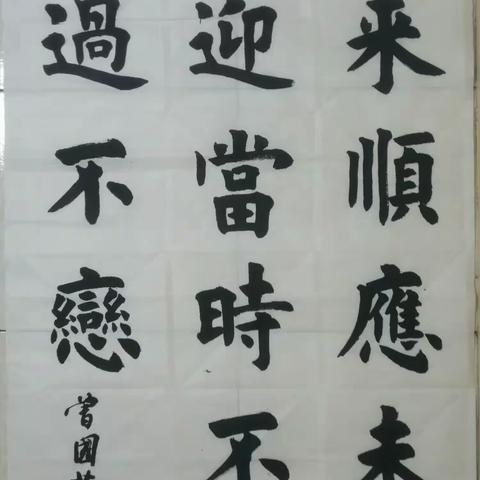 来順應未
迎當時不
過不戀
曾國